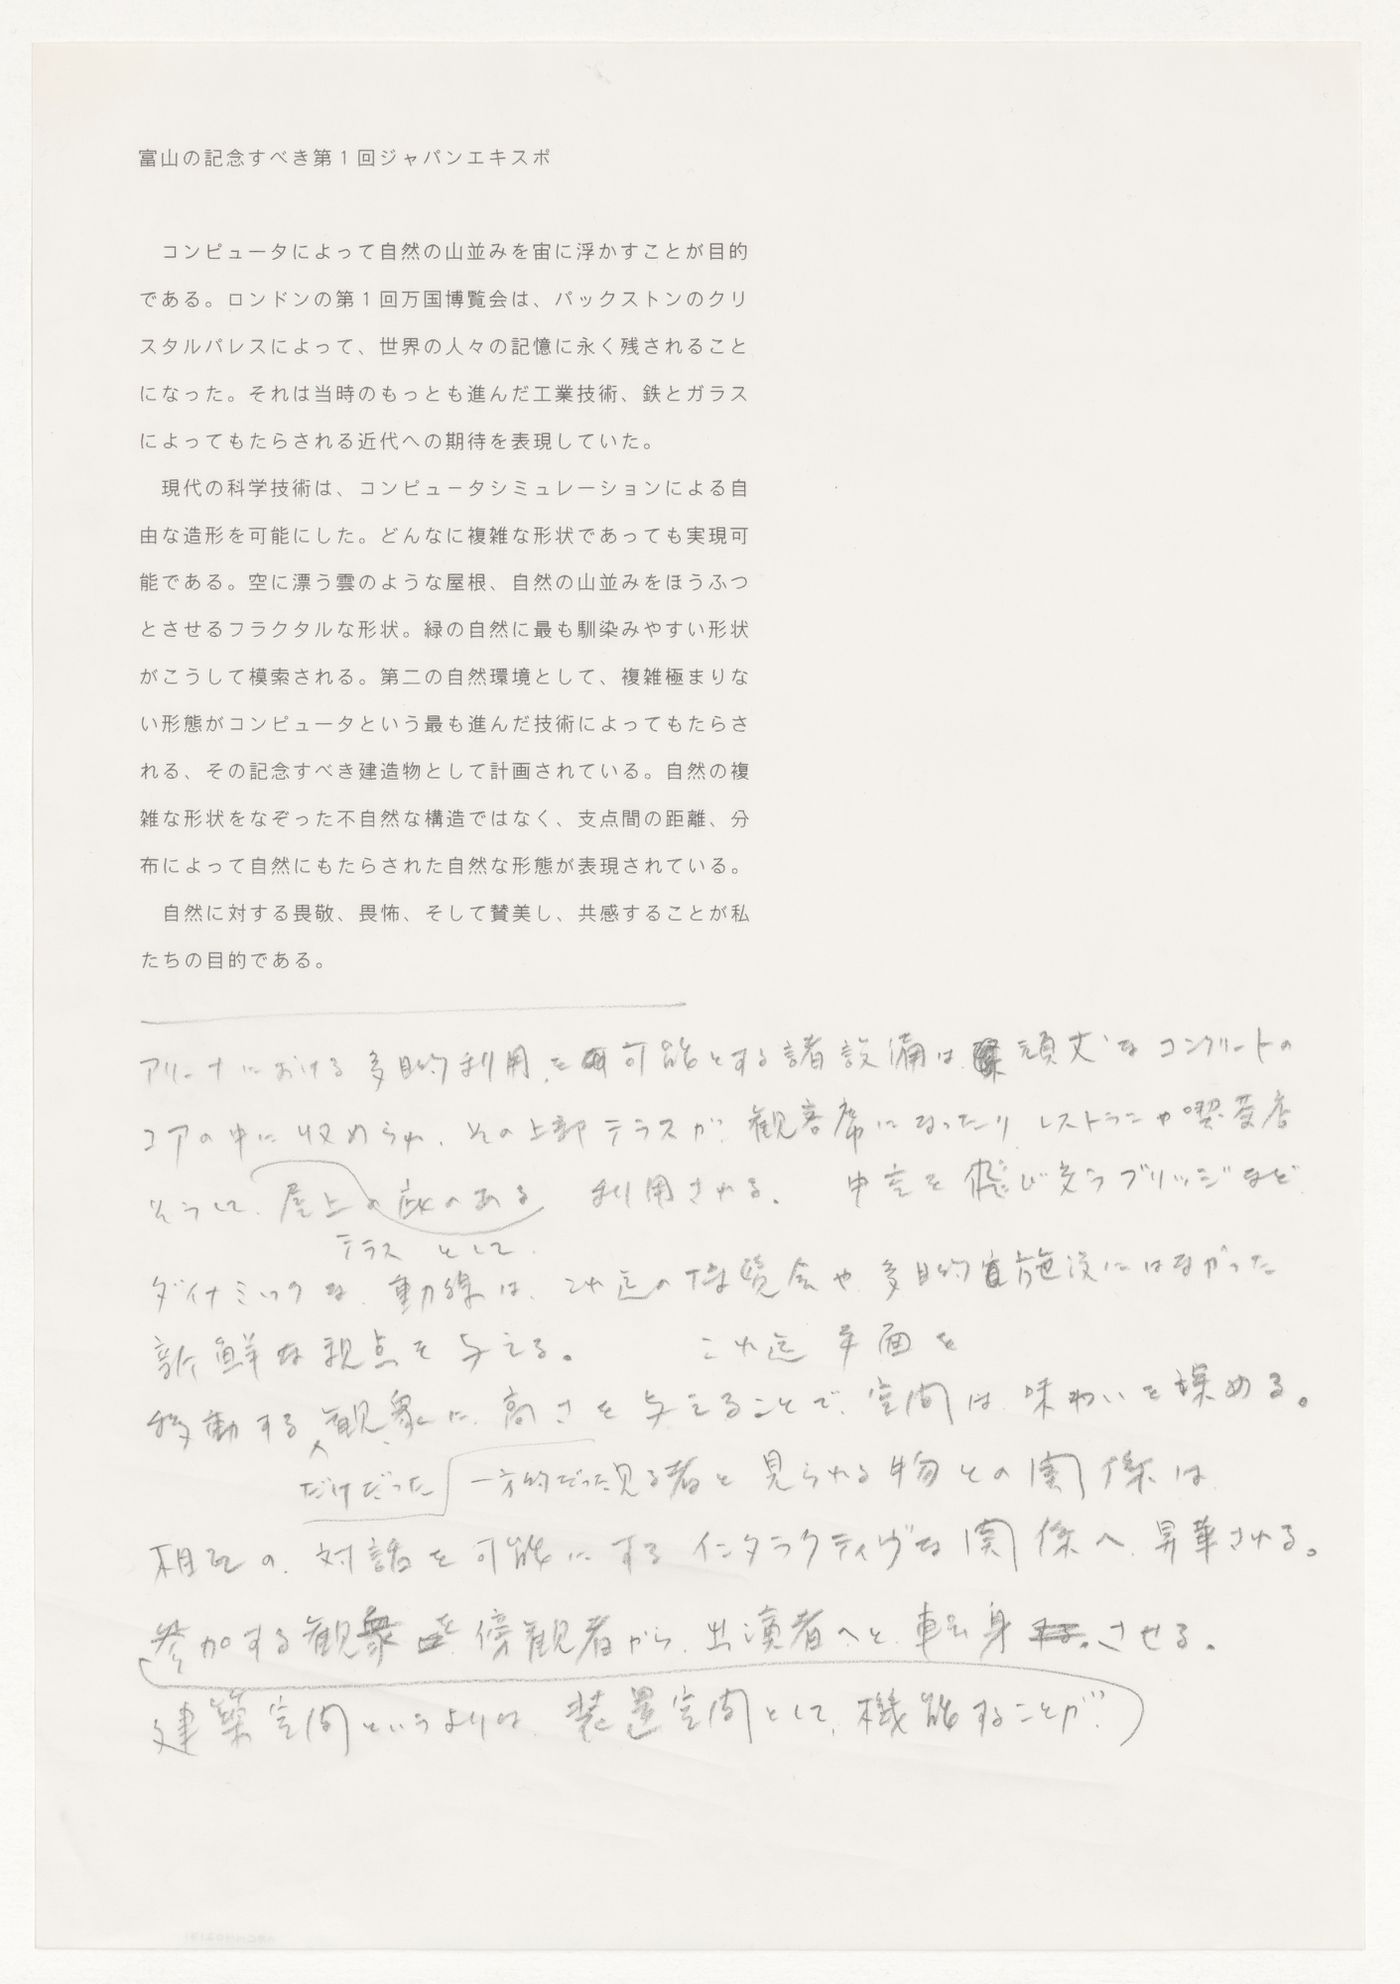 富山の記念すべき第１回ジャパンエキスポ
コンピュータによって自然の山並みを宙に浮かすことが目的
である。ロンドンの第１回万国博覧会は、パックストンのクリ
スタルパレスによって、世界の人々の記憶に永く残されること
になった。それは当時のもっとも進んだ工業技術、鉄とガラス
によってもたらされる近代への期待を表現していた。
現代の科学技術は、コンピュータシミュレーションによる自
由な造形を可能にした。どんなに複雑な形状であっても実現可
能である。空に漂う雲のような屋根、自然の山並みをほうふつ
とさせるフラクタルな形状。緑の自然に最も馴染みやすい形状
がこうして模索される。第二の自然環境として、複雑極まりな
い形態がコンピュータという最も進んだ技術によってもたらさ
れる、その記念すべき建造物として計画されている。自然の複
雑な形状をなぞった不自然な構造ではなく、支点間の距離、分
布によって自然にもたらされた自然な形態が表現されている。
自然に対する畏敬、畏怖、そして賛美し、共感することが私
たちの目的である。
アリーナにおける多目的利用を可能とする諸設備は、頑丈なコンクリートの
コアの中に収められ、その上部テラスが、観客席になったり、レストランや喫茶店
そうして、屋上のある 利用される。 中空を飛び交うブリッジなど
テラス として
ダイナミックな、動線は、これ迄の博覧会や、多目的施設にはなかった
新鮮な視点を与える。 これ迄 平面を
移動する 観衆に、高さを与えることで、空間は、味わいを深める。
だけだった 一方的だった見る者と見られる物との関係は
相互の、対話を可能にするインタラクティヴな関係へ、昇華される。
参加する観衆を傍観者から、出演者へと、転身させる。
建築空間というよりは、装置空間として、機能することが、